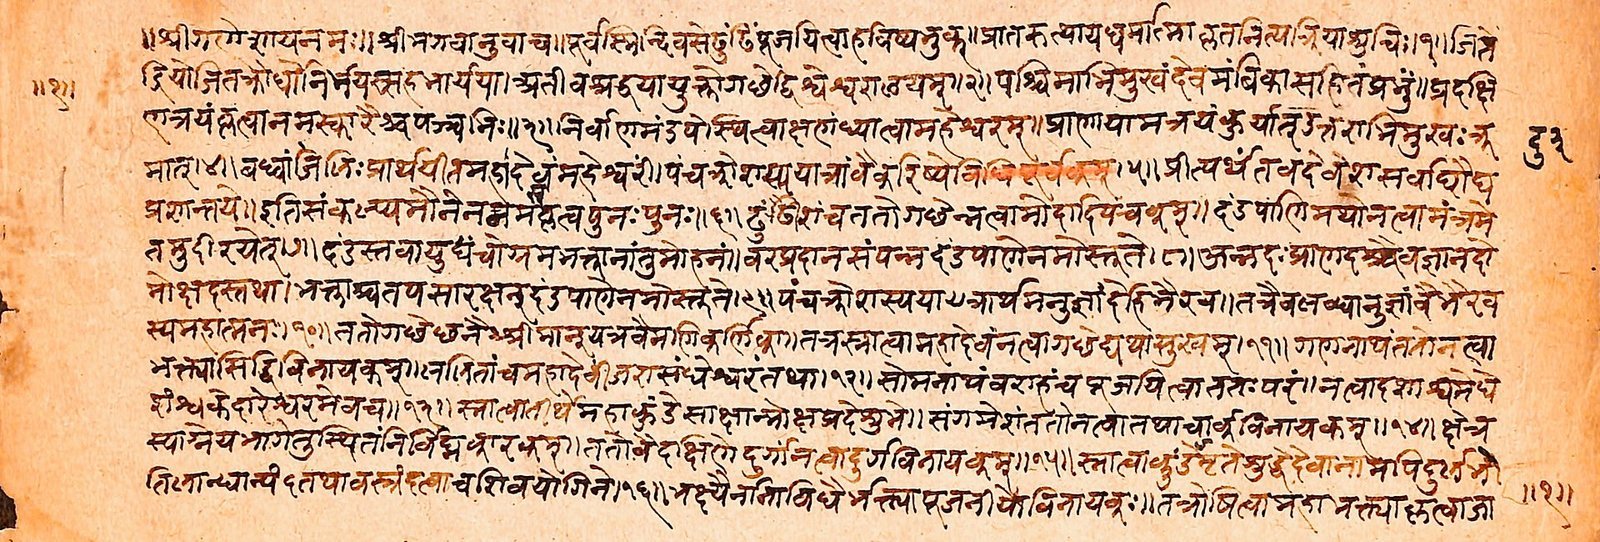 ॥श्रीगणेशायनमः॥श्रीभगवानुवाच॥पूर्वस्मिन्दिवसेढुंढिंपूजयित्वाहविष्यभुक्॥प्रातरुत्थायधर्मात्माकृतनित्यक्रियाशुचिः।१।जिते
॥१॥ द्रियोजितक्रोधोनिर्भयःसहभार्यया।अतीवश्रद्धयायुक्तोगछेद्विश्वेश्वरालयम्॥२॥पश्चिमाभिमुखंदेवमंबिकासहितंप्रभुं॥प्रदक्षि
णत्रयंकृत्वानमस्कारैश्चपञ्चभिः॥३॥निर्वाणमंडपेस्थित्वाक्षणंध्यात्वामहेश्वरम्॥प्राणायामत्रयंकुर्यात्उत्तराभिमुखःक्र
मात्।४।बध्वांजलिंप्रार्थयीतमहादेवंमहेश्वरीं।पंचक्रोशस्ययात्रांवैकरिष्येविधिपूर्वकम्।५॥प्रीत्यर्थंतवदेवेशसर्वाघौघ
प्रशान्तये॥इतिसंकल्प्यमौनेन पुनःपुनः॥६॥ढुंढिराजंचततोगछेन्नत्वामोदादिपंचकम्॥दंडपाणिमथोनत्वामंत्रमे
तमुदीरयेत्।७।दंडस्तवायुधं वरप्रदानसंपन्नदंडपाणेनमोस्तुते।८।अन्नदःप्राणदश्चैवज्ञानदो
मोक्षदस्तथा। दंडपाणेनमोस्तुते।९॥पंचक्रोशस्ययात्रार्थमनुज्ञांदेहिभैरव॥तत्रैवलब्ध्वानुज्ञांवैभैरव
स्यमहात्मनः।१०।ततोगछे श्रीमान्यत्रवैमणिकर्णिका।तत्रस्नात्वामहादेवंनत्वागछेद्यथासुखम्।११॥गणनाथंततोनत्वा
भक्त्यासिद्धिविनायकम्॥ललितांचमहादेवींजरासंधेश्वरंतथा।१२।सोमनाथंवराहंचपूजयित्वाततःपरं॥नत्वादशाश्वमेधे
शंश्चकेदारेश्वरमेवच॥१३॥स्नात्वातीर्थेमहाकुंडेसाक्षान्मोक्षप्रदेशुभे॥संगमेशंततोनत्वातथाचार्कविनायकम्॥१४॥क्षेत्र
स्याग्नेयभागेतुस्थितंनिर्विघ्नकारकम्।ततोवैदक्षिणेदुर्गांनत्वादुर्गविनायकम्॥१५॥स्नात्वाकुंडे
दत्वाचशिवयोगिने।१६।भक्ष्यैर्नानाविधैर्भक्त्यापूजनीयोविनायकः॥तत्रोषित्वामहाभक्त्याकृत्वाजा ॥१॥